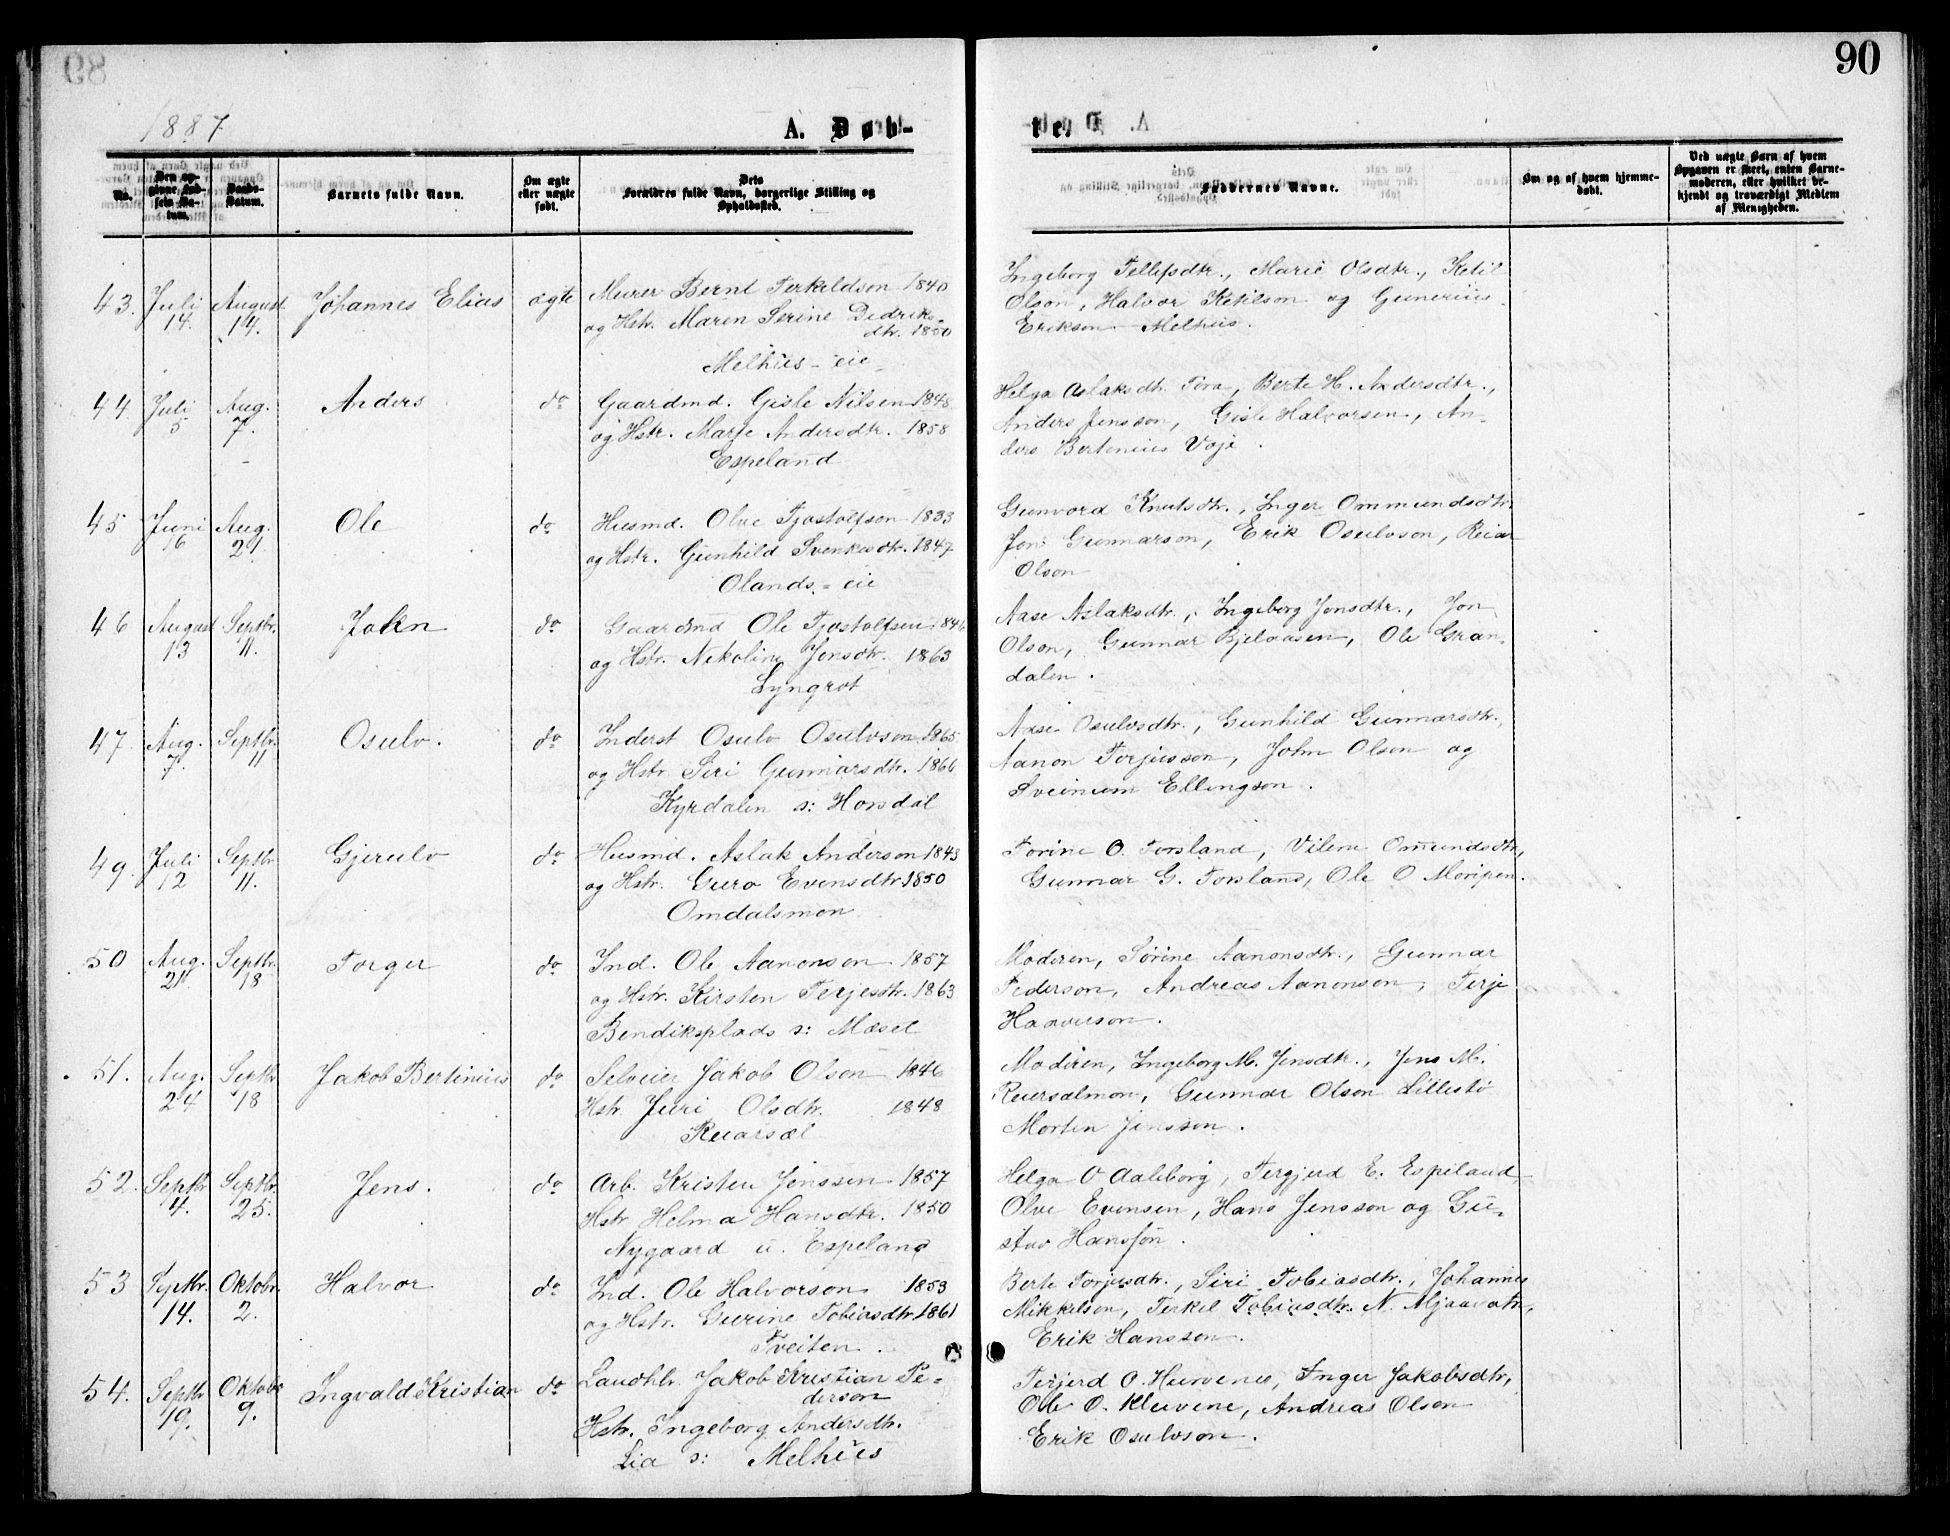 90
1887
A. Døb-
te.
No.
Den op-
givne Fød-
sels Da-
tum.
Daabs-
Datum.
Barnets fulde Navn.
Om ægte
eller uægte
født.
Dets
Forældres fulde Navn, borgerlige Stilling og
Opholdssted.
Faddernes Navne.
Om og af hvem hjemme-
døbt.
Ved uægte Børn af hvem
Opgaven er skeet, enten Barne-
moderen, eller hvilket be-
kjendt og troværdigt Medlem
af Menigheden.
43. Juli 14. August 14. Johannes Elias ægte
Murer Bernt Terkeldson 1840
og Hstr. Maren Serine Didriks-
dtr. 1850
Melhus-eie
Ingeborg Tellefsdtr., Marie Olsdtr., Ketil
Olson, Halvor Ketilson og Gunerius
Erikson Melhus.
44 Juli 5 Aug. 7. Anders do
Gaardmd. Gisle Nilsen 1848
og Hstr. Marte Andersdtr. 1858
Espeland
Helga Aslaksdtr. Tora, Berte H. Andersdtr.,
Anders Jensson, Gisle Halvorsen, An-
ders Bertenius Voje.
45 Juni 16 Aug. 21. Ole do
Husmd. Olve Tjostolfson 1833
og Hstr. Gunhild Svenkesdtr. 1847
Olands-eie
Gunvord Knutsdtr., Inger Ommundsdtr.
Jon Gunnarson, Erik Osulvson, Reiar
Olson
46 August 13 Septbr. 11. John do
Gaardmd Ole Tjostolfsen 1846
og Hstr. Nikoline Jensdtr. 1863
Lyngrot
Aase Aslaksdtr., Ingeborg Jonsdtr., Jon
Olson, Gunnar Bjelaasen, Ole Gran-
dalen.
47. Aug. 7. Septbr. 11 Osulv. do
Inderst Osulv Osulvson 1865
og Hstr. Siri Gunnarsdtr. 1866
Kyrdalen s: Horsdal
Aase Osulvsdtr., Gunhild Gunnarsdtr.,
Aanon Torjusson, John Olson og
Sveinum Ellingson.
49. Juli 12 Septbr 11. Gjerulv do
Husmd. Aslak Anderson 1843
og Hstr. Guro Evensdtr 1850
Omdalsmon
Torine O. Torsland, Vilene Omundsdtr,
Gunnar G. Torsland, Ole O Moripen.
50 Aug. 21 Septbr. 18 Torger do
Ind. Ole Aanonson 1857
og Hstr. Kirsten Terjesdtr. 1863
Bendiksplads s: Mæsel
Moderen, Sørine Aanonsdtr., Gunnar
Pederson, Andreas Aanonsen, Terje
Haaverson.
51. Aug. 24 Septbr 18 Jakob Bertinius do
Selveier Jakob Olsen 1846
Hstr. Juri Olsdtr. 1848
Reiarsæl
Moderen, Ingeborg M. Jensdtr., Jens M.
Reiersælmon, Gunnar Olson Lillestø
Morten Jensson.
52. Septbr 4. Septbr. 25. Jens. do
Arb. Kristen Jenssen 1857
Hstr Helma Hansdtr. 1850
Nygaard u. Espeland
Helga O Aaleborg, Tergjerd E. Espeland,
Olve Evensen, Hans Jensson og Gu-
stav Hansson.
53 Septbr. 14. Oktobr. 2. Halvor do
Ind. Ole Halvorson 1853
og Hstr. Gurine Tobiasdtr. 1861
Tveiten.
Berte Torjusdtr., Siri Tobiasdtr., Johannes
Mikkelson, Terkel Tobiasdtr. N. Mjaavatn,
Erik Hansson.
54. Septbr 19. Oktobr 9. Ingvald Kristian do
Landhlr. Jakob Kristian Pe-
derson
Hstr. Ingeborg Andersdtr.
Lia s: Melhus
Terjerd O. Hurvenes, Inger Jakobsdtr,
Ole O. Kleivene, Andreas Olson
Erik Osulvson.